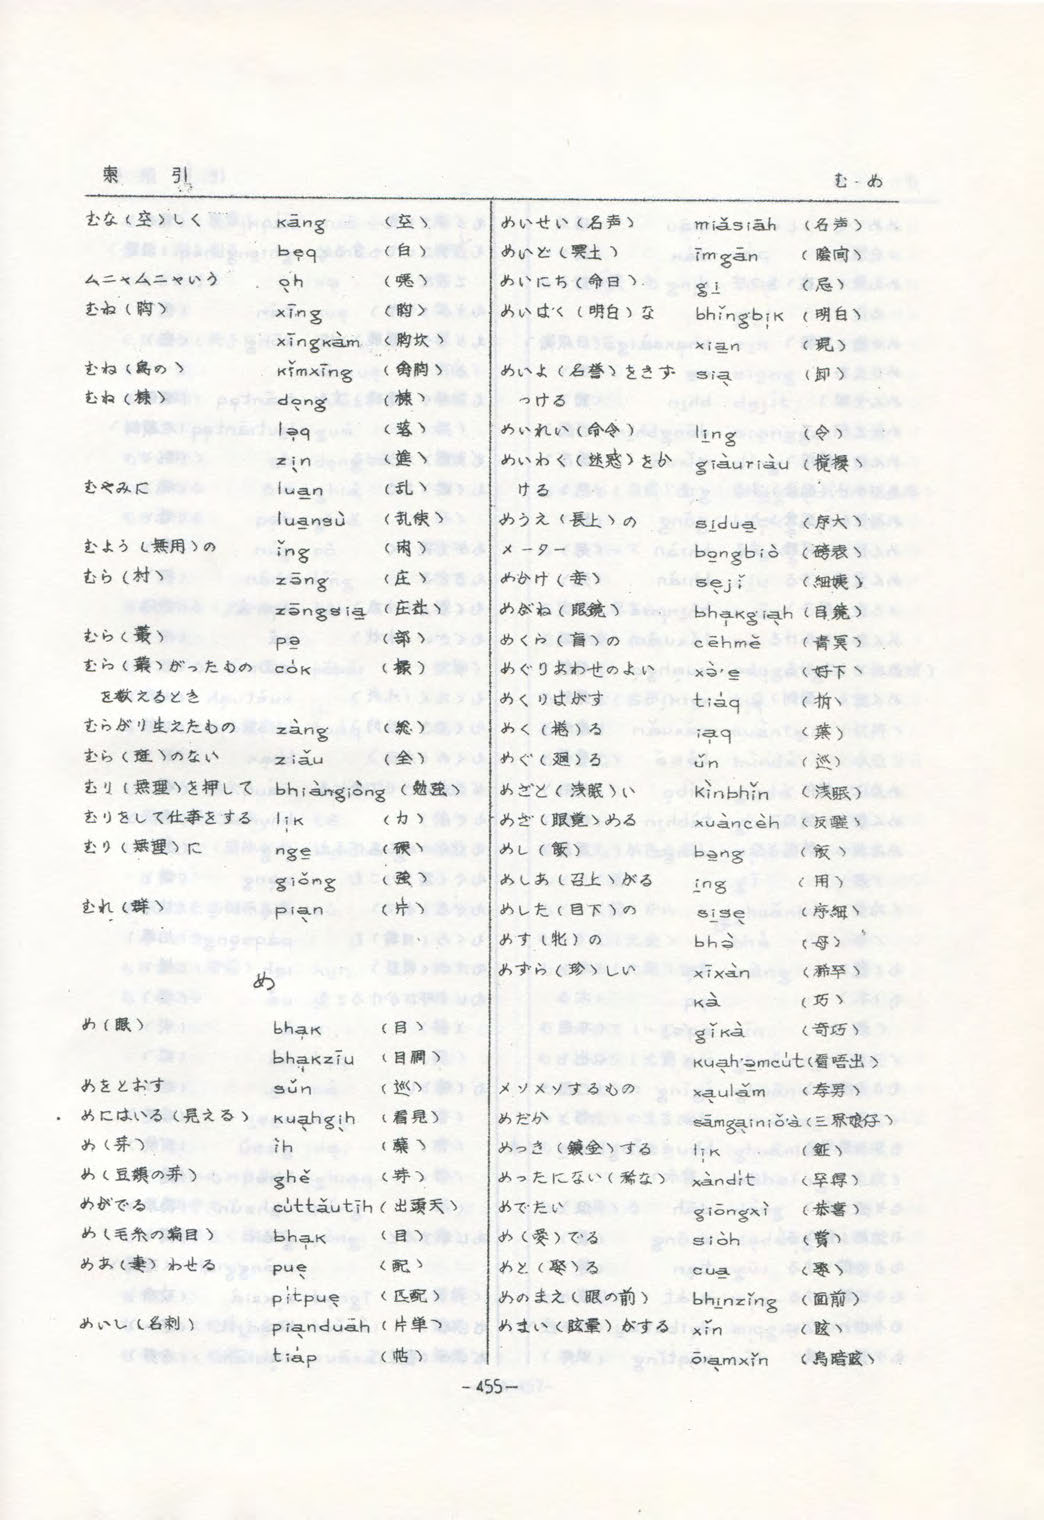 索引
む・め
むな(空)しく kāng (空)
bẹq (白)
ムニャムニャいう o̤h (嗯)
むね(胸) xīng (胸)
xīngkàm (胸坎)
むね(鳥の) kǐmxīng (禽胸)
むね(棟) dọng (棟)
lạq (落)
zị̄n (進)
むやみに lua̱n (乱)
lua̱nsù (乱使)
むよう(無用)の ǐng (閑)
むら(村) zāng (庄)
zāngsia̱ (庄社)
むら(叢) pə̱ (部)
むら(叢)がったもの cȯk (撮)
を数えるとき
むらがり生えたもの zàng (総)
むら(斑)のない ziǎu (全)
むり(無理)を押して bhiàngiòng (勉強)
むりをして仕事をする lı̍k (力)
むり(無理)に nge̱ (硬)
giǒng (強)
むれ(群) piạn (片)
め
め(眼) bhạk (目)
bhạkzīu (目睭)
めをとおす sǔn (巡)
めにはいる(見える) kuạhgịh (看見)
め(芽) ìh (蘖)
め(豆類の芽) ghě (芽)
めがでる cu̍ttǎutīh (出頭天)
め(毛糸の編目) bhạk (目)
めあ(妻)わせる puẹ (配)
pi̍tpuẹ (匹配)
めいし(名刺) piạnduāh (片単)
tia̍p (帖)
めいせい(名声) miǎsiāh (名声)
めいど(冥土) īmgān (陰間)
めいにち(命日) gi̱ (忌)
めいはく(明白)な bhǐngbịk (明白)
xia̱n (現)
めいよ(名誉)をきず siạ (卸)
つける
めいれい(命令) li̱ng (令)
めいわく(迷惑)をか giàuriàu (攪擾)
ける
めうえ(長上)の si̱dua̱ (序大)
メーター bo̱ngbiò (磅表)
めかけ(妾) sẹjǐ (細姨)
めがね(眼鏡) bhạkgiạh (目鏡)
めくら(盲)の cēhmě (青冥)
めぐりあわせのよい xə̀'e̱ (好下)
めくりはがす tia̍q (拆)
めく(捲)る iạq (葉)
めぐ(廻)る ǔn (巡)
めざと(浅眠)い kìnbhǐn (浅眠)
めざ(眼覚)める xuàncèh (反醒)
めし(飯) bə̱ng (飯)
めしあ(召上)がる i̱ng (用)
めした(目下)の si̱sẹ (序細)
めす(牝)の bhə̀ (母)
めずら(珍)しい xīxàn (稀罕)
kà (巧)
gǐkà (奇巧)
kuạh'ə̱mcu̍t (看唔出)
メソメソするもの xạulǎm (孝男)
めだか sāmgạiniǒ'à (三界娘仔)
めっき(鍍金)する lı̍k (鉦)
めったにない(稀な) xàndi̍t (罕得)
めでたい giōngxì (恭喜)
め(愛)でる siòh (賞)
めと(娶)る cua̱ (娶)
めのまえ(眼の前) bhi̱nzǐng (面前)
めまい(眩暈)がする xǐn (眩)
ō'ạmxǐn (烏暗眩)
-455-